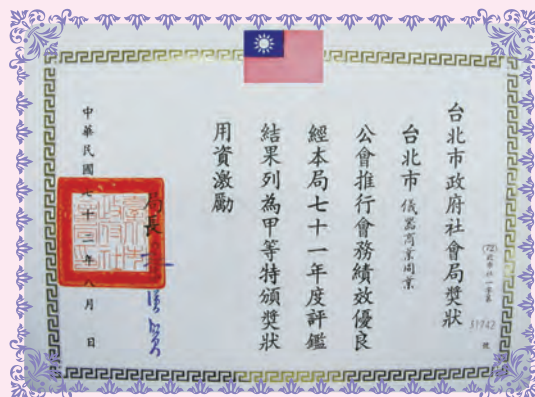 台北市政府社會局獎狀
台北市儀器商業同業
公會推行會務績效優良
經本局七十一年度評鑑
結果列為甲等特頒獎狀
用資激勵
局長
中華民國七十二年八月 日
(72)
31742
號